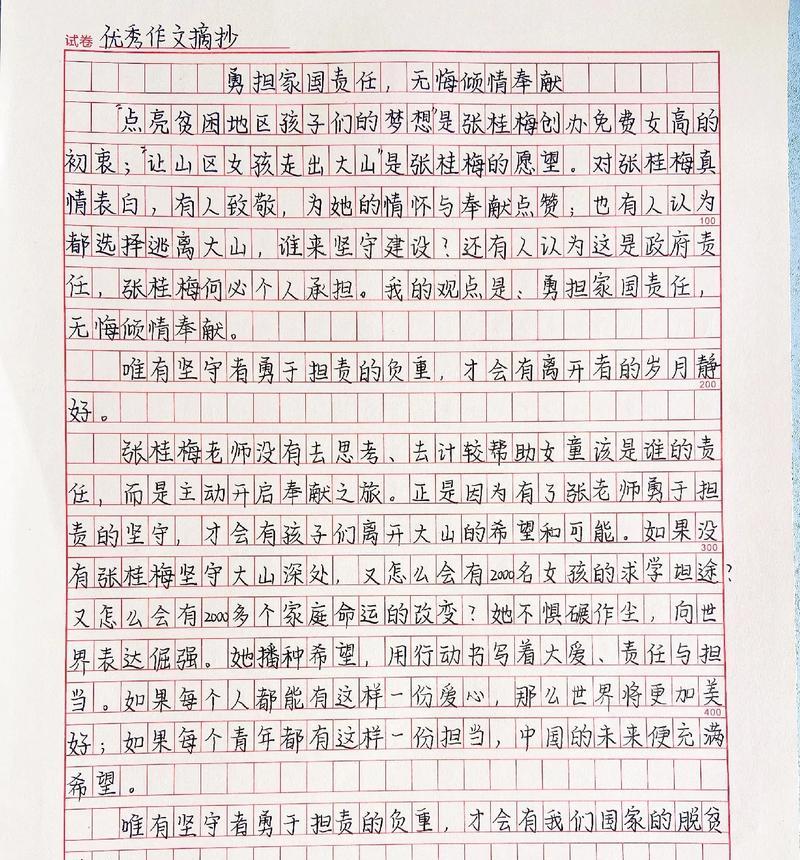 试卷 优秀作文摘抄
勇担家国责任，无悔倾情奉献
“点亮贫困地区孩子们的梦想”是张桂梅创办免费女高的
初衷；“让山区女孩走出大山”是张桂梅的愿望。对张桂梅真
情表白，有人致敬，为她的情怀与奉献点赞；也有人认为
100
都选择逃离大山，谁来坚守建设？还有人认为这是政府责
任，张桂梅何必个人承担。我的观点是：勇担家国责任，
无悔倾情奉献。
唯有坚守者勇于担责的负重，才会有离开者的岁月静
200
好。
张桂梅老师没有去思考、去计较帮助女童该是谁的责
任，而是主动开启奉献之旅。正是因为有了张老师勇于担
责的坚守，才会有孩子们离开大山的希望和可能。如果没
300
有张桂梅坚守大山深处，又怎么会有2000名女孩的求学坦途？
又怎么会有2000多个家庭命运的改变？她不惧碾作尘，向世
界表达倔强。她播种希望，用行动书写着大爱、责任与担
当。如果每个人都能有这样一份爱心，那么世界将更加美
400
好；如果每个青年都有这样一份担当，中国的未来便充满
希望。
唯有坚守者勇于担责的负重，才会有我们国家的脱贫